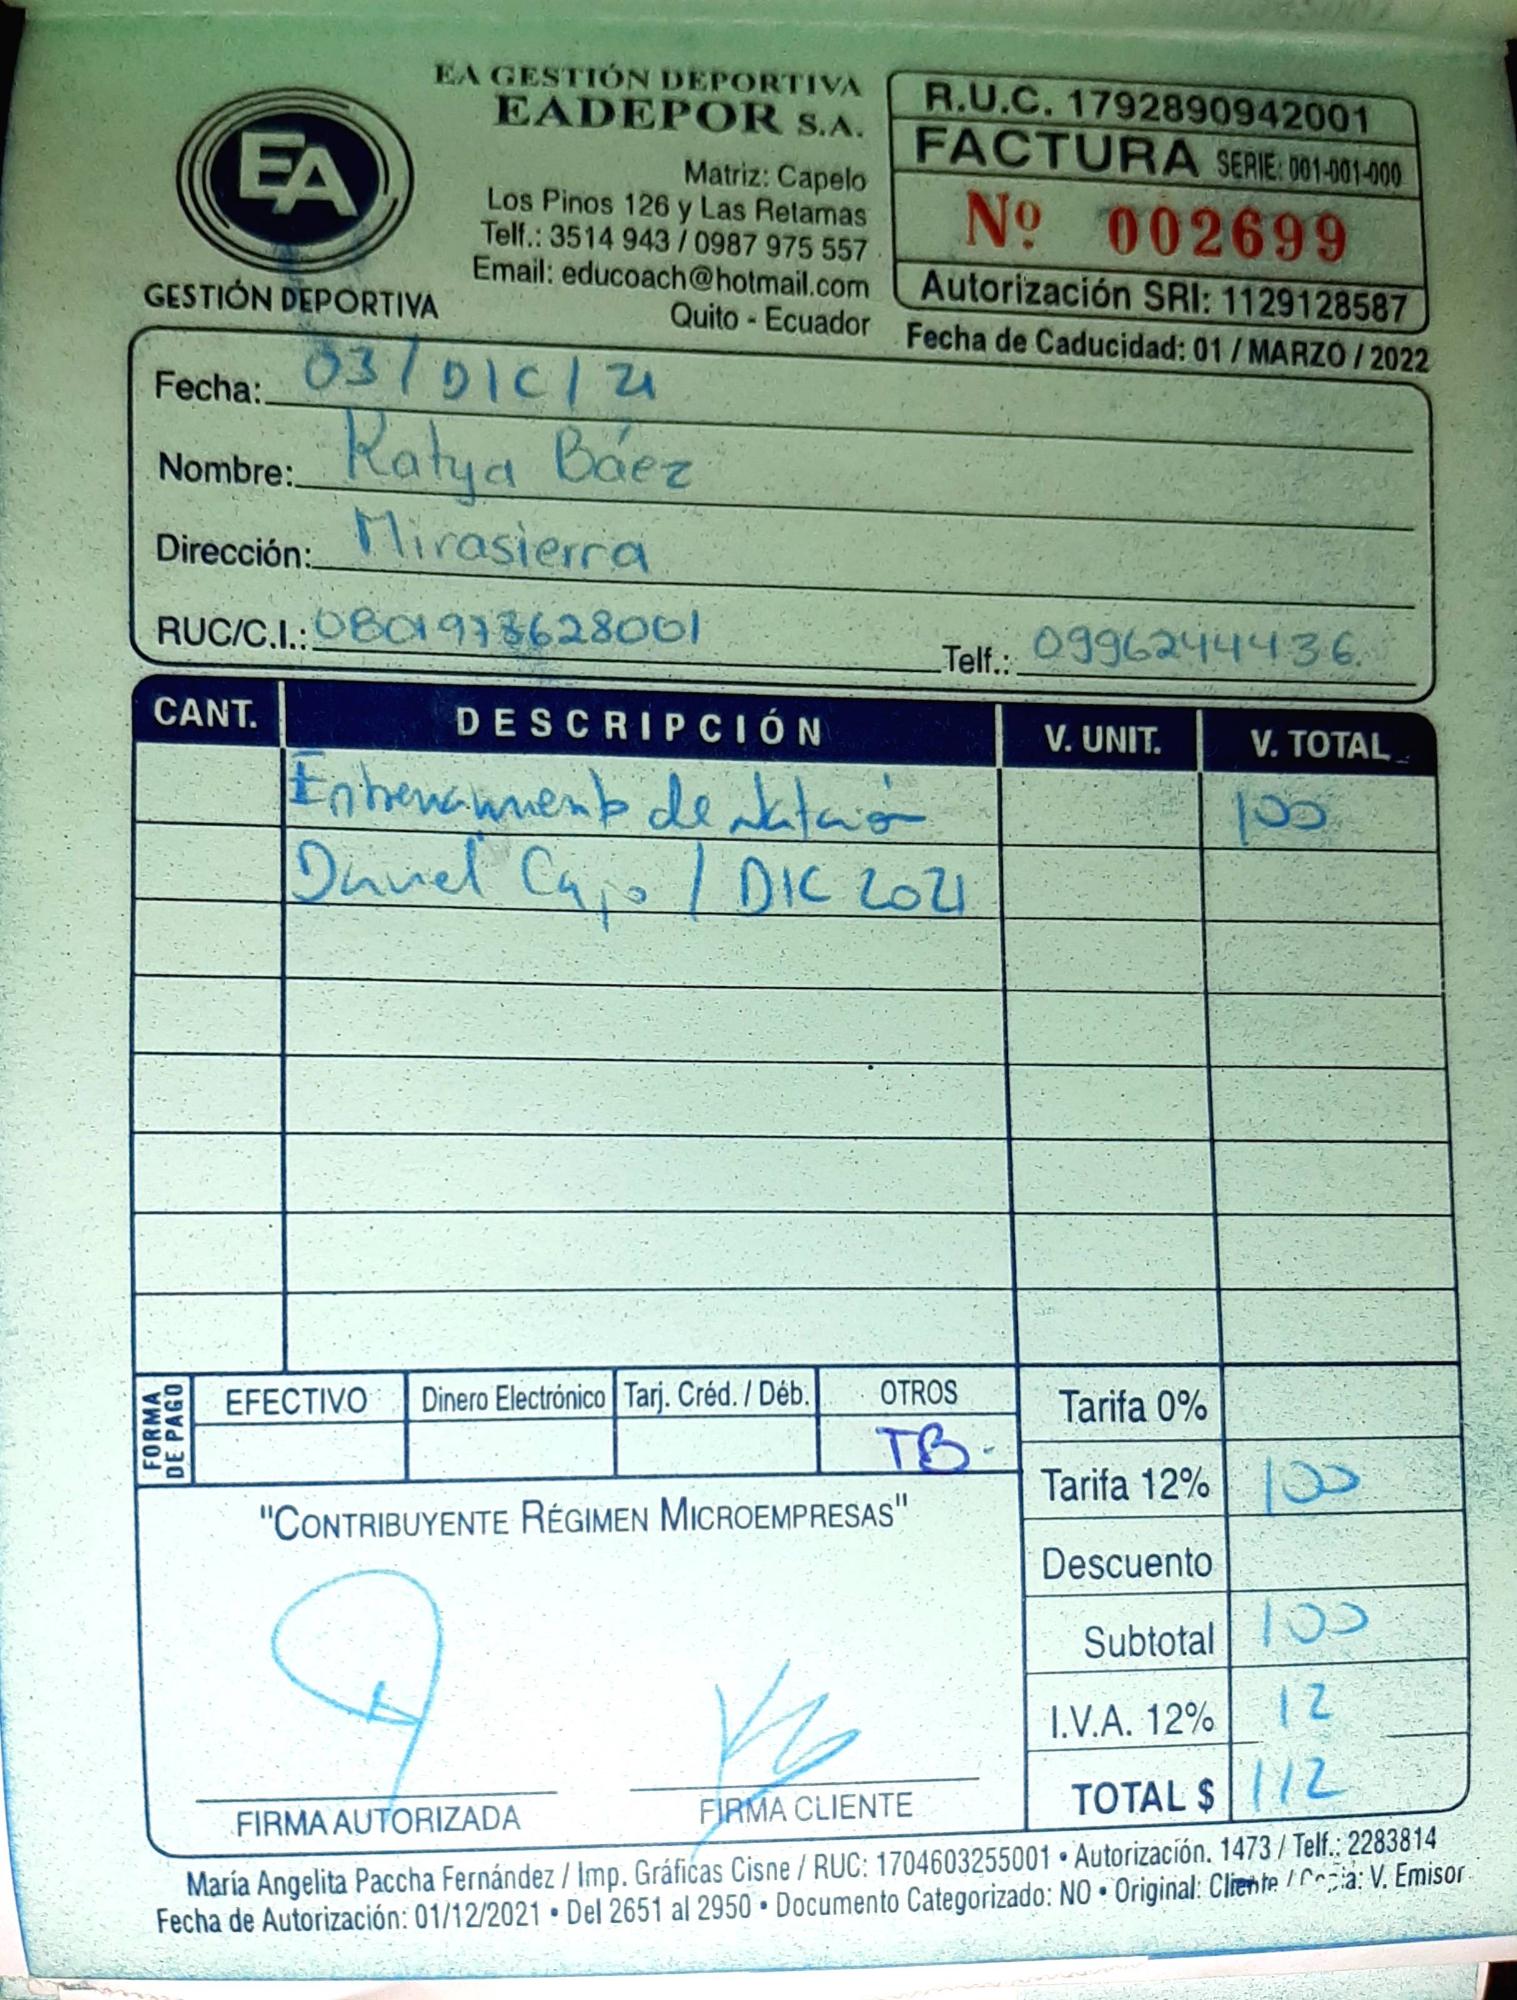 EA GESTIÓN DEPORTIVA
EADEPOR S.A.
EA
GESTIÓN DEPORTIVA
Matriz: Capelo
Los Pinos 126 y Las Retamas
Telf.: 3514 943 / 0987 975 557
Email: educoach@hotmail.com
Quito - Ecuador
R.U.C. 1792890942001
FACTURA SERIE: 001-001-000
Nº 002699
Autorización SRI: 1129128587
Fecha de Caducidad: 01 / MARZO / 2022
Fecha: 03 / DIC / 21
Nombre: Katya Báez
Dirección: Mirasierra
RUC/C.I.: Telf.: 0996244436.
CANT. DESCRIPCIÓN V. UNIT. V. TOTAL
Entrenamiento de Natación 100
Daniel / DIC 2021
FORMA DE PAGO
EFECTIVO Dinero Electrónico Tarj. Créd. / Déb. OTROS
TB.
Tarifa 0%
Tarifa 12% 100
Descuento
Subtotal 100
I.V.A. 12% 12
TOTAL $ 112
"CONTRIBUYENTE RÉGIMEN MICROEMPRESAS"
FIRMA AUTORIZADA FIRMA CLIENTE
María Angelita Paccha Fernández / Imp. Gráficas Cisne / RUC: 1704603255001 • Autorización. 1473 / Telf.: 2283814
Fecha de Autorización: 01/12/2021 • Del 2651 al 2950 • Documento Categorizado: NO • Original: Cliente / Copia: V. Emisor